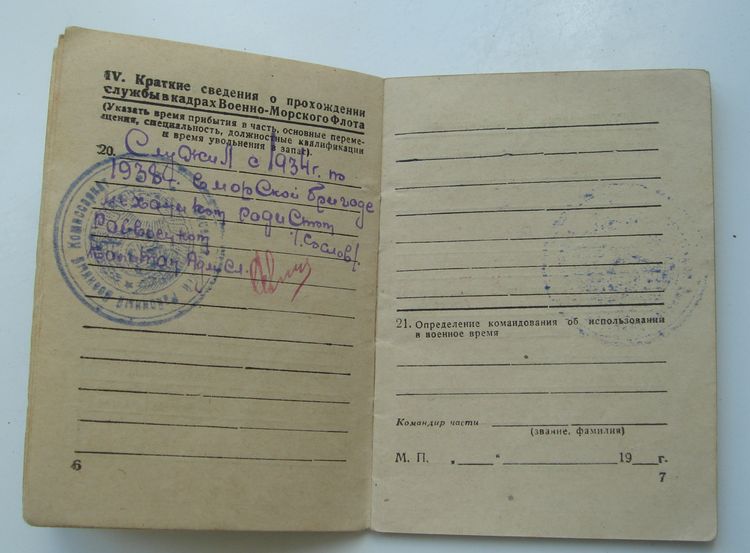 IV. Краткие сведения о прохождении
службы в кадрах Военно-Морского Флота
(Указать время прибытия в часть, основные переме-
щения, специальность, должностные квалификации
и время увольнения в запас).
20. Служил с 1934г. по
1938г. в морской бригаде
механиком радистом
(. со слов).
6
21. Определение командования об использовании
в военное время
Командир части
(звание, фамилия)
М. П. „ “ 19 г.
7